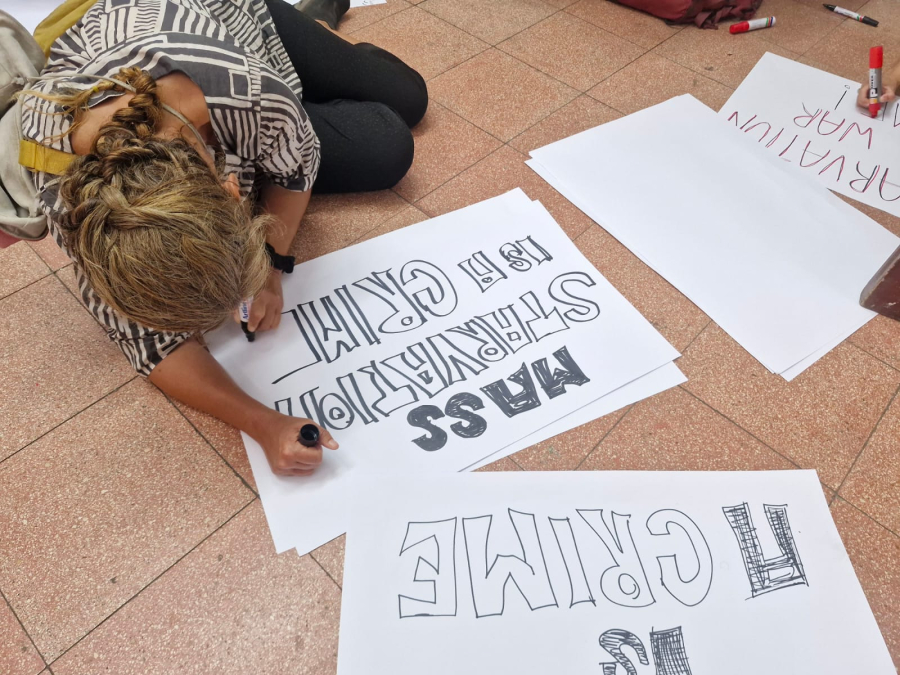 MASS
STARVATION
IS A CRIME
IS
A CRIME
ARVATION
WAR